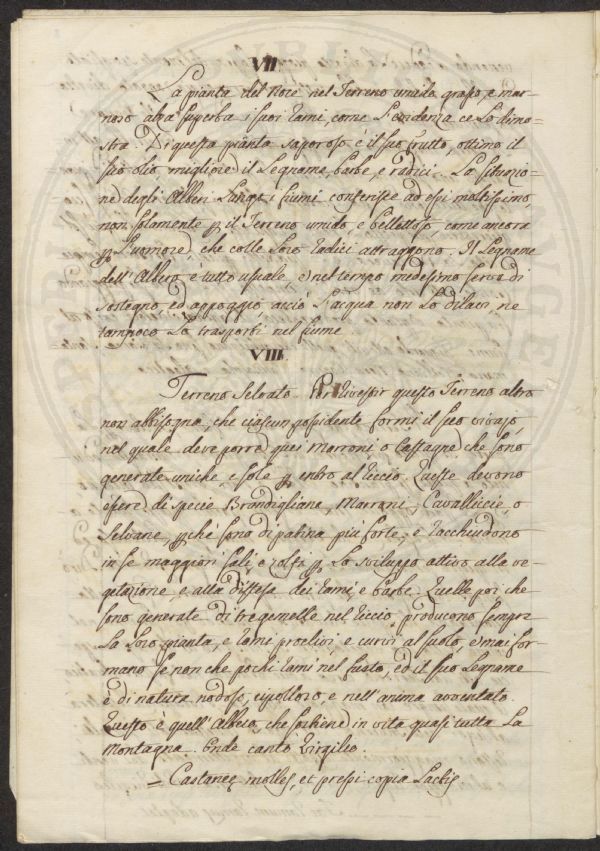 VII.
La pianta del Noce nel Terreno umido, grasso, e mar-
noso alza superba i suoi rami, come l'evidenza ce lo dimo-
stra. Di questa pianta saporoso è il suo frutto, ottimo il
suo olio migliore il Legname, barbe, e radici. La situazio-
ne degli Alberi Lungo i fiumi conferisce ad essi moltissimo,
non solamente p il Terreno umido, e bellettoso, come ancora
p l'umore, che colle loro radici attraggono. Il Legname
dell'Albero è tutto usuale, e nel tempo medesimo serve di
sostegno, ed appoggio, acciò l'acqua non lo dilavi, ne
tampoco lo trasporti nel fiume
VIII.
Terreno Selvato. Per rivestir questo Terreno altro
non abbisogna, che ciascun possidente formi il suo vivajo,
nel quale deve porre quei Marroni, o Castagne, che sono
generate uniche, e sole p entro al riccio. Queste devono
essere di specie Brandigliane, Marroni, Cavalliccie, o
Selvane, pchè sono di patina più forte, e racchiudono
in se maggiori sali, e zolfi p lo sviluppo attivo alla ve-
getazione, e alla diffesa dei rami, e barbe. Quelle poi che
sono generate di tregemelle nel riccio, producono sempre
la loro pianta, e rami proclivi, e curvi al suolo, e mai for-
mano se non che pochi rami nel fusto, ed il suo Legname
è di natura nodoso, cipolloso, e nell'anima avventato.
Questo è quell'Albero, che sostiene in vita quasi tutta la
Montagna. Onde cantò Virgilio.
= Castaneę molles, et pressi copia Lactis.